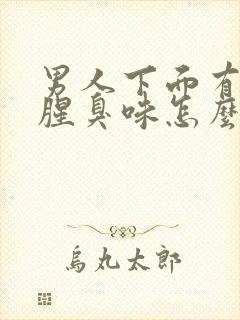 男人下面有
腥臭味怎麼
烏丸太郎